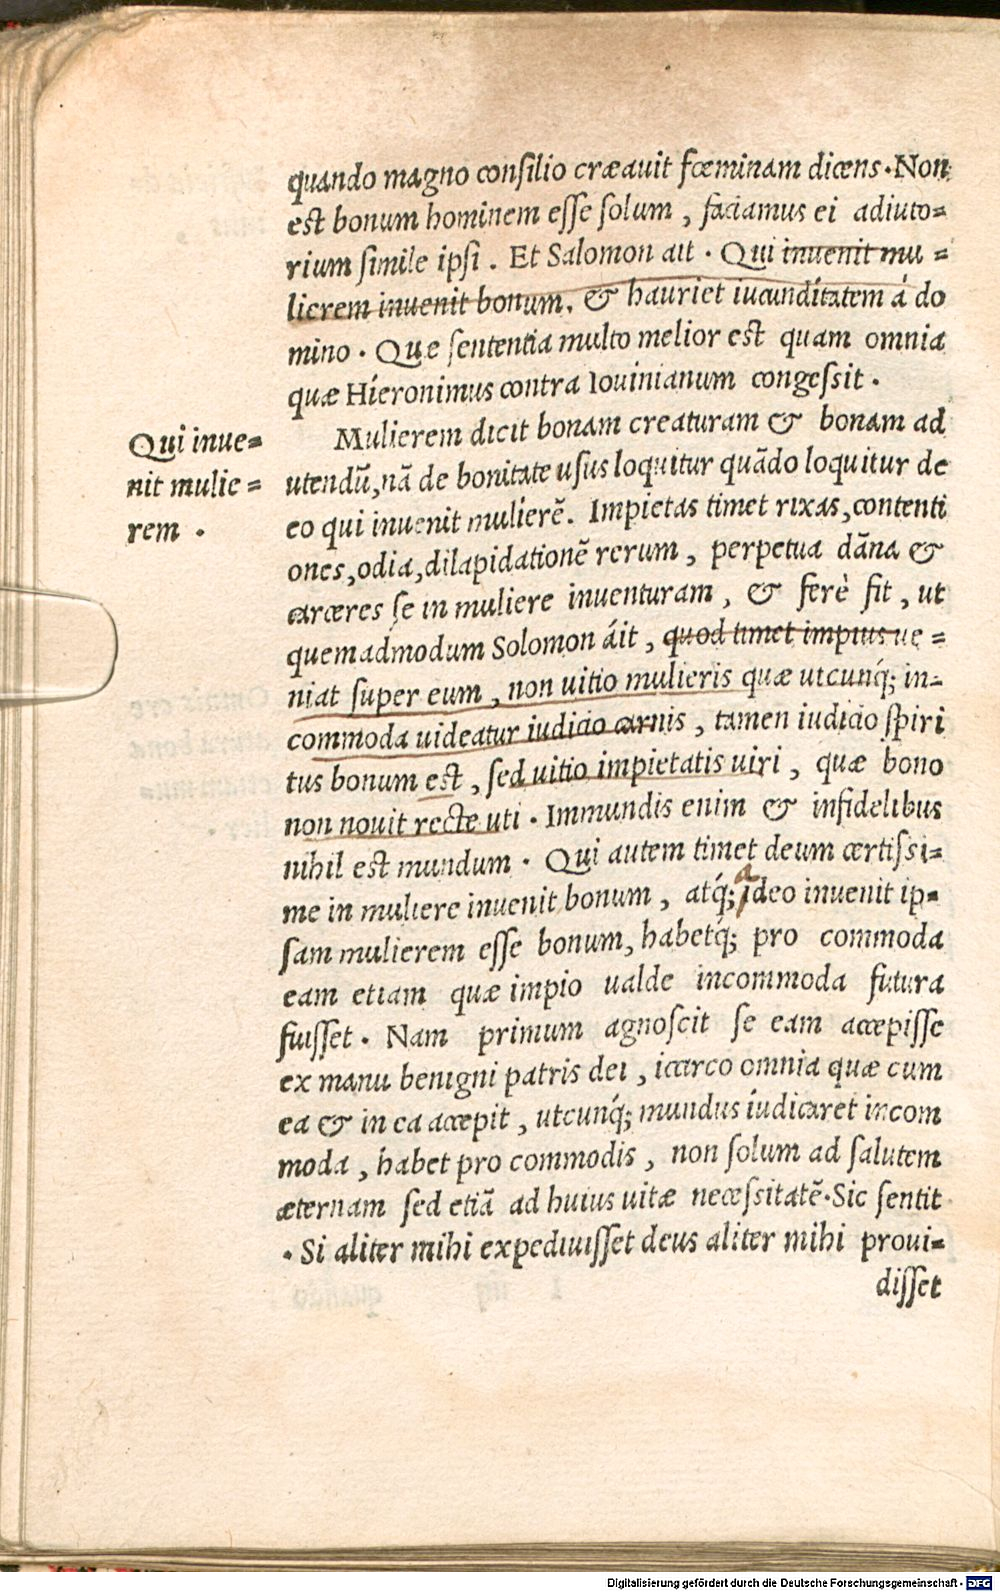 quando magno consilio cræauit fœminam dicens. Non
est bonum hominem esse solum, faciamus ei adiuto-
rium simile ipsi. Et Salomon ait. Qui inuenit mu-
lierem inuenit bonum, & hauriet iucunditatem á do
mino. Que sententia multo melior est quam omnia
quæ Híeronimus contra Iouinianum congessit.
Qui inue-
nit mulie-
rem.
Mulierem dicit bonam creaturam & bonam ad
utendũ, nã de bonitate usus loquitur quãdo loquitur de
eo qui inuenit mulierẽ. Impietas timet rixas, contenti
ones, odia, dilapidationẽ rerum, perpetua dãna &
carceres se in muliere inuenturam, & ferè fit, ut
quemadmodum Solomon áit, quod timet impius ue-
niat super eum, non uitio mulieris quæ utcunq́; in-
commoda uideatur iudicio carnis, tamen iudicio spiri
tus bonum est, sed uitio impietatis uiri, quæ bono
non nouit recte uti. Immundis enim & infidelibus
nihil est mundum. Qui autem timet deum certissi-
me in muliere inuenit bonum, atq́; ideo inuenit ip-
sam mulierem esse bonum, habetq́; pro commoda
eam etiam quæ impio ualde incommoda futura
fuisset. Nam primum agnoscit se eam accepisse
ex manu benigni patris dei, icarco omnia quæ cum
ea & in ea accepit, utcunq́; mundus íudicaret incom
moda, habet pro commodis, non solum ad salutem
æternam sed etiã ad huius uitæ necessitatẽ. Sic sentit
. Si aliter mihi expediuisset deus aliter mihi proui-
disset
Digitalisierung gefördert durch die Deutsche Forschungsgemeinschaft - DFG